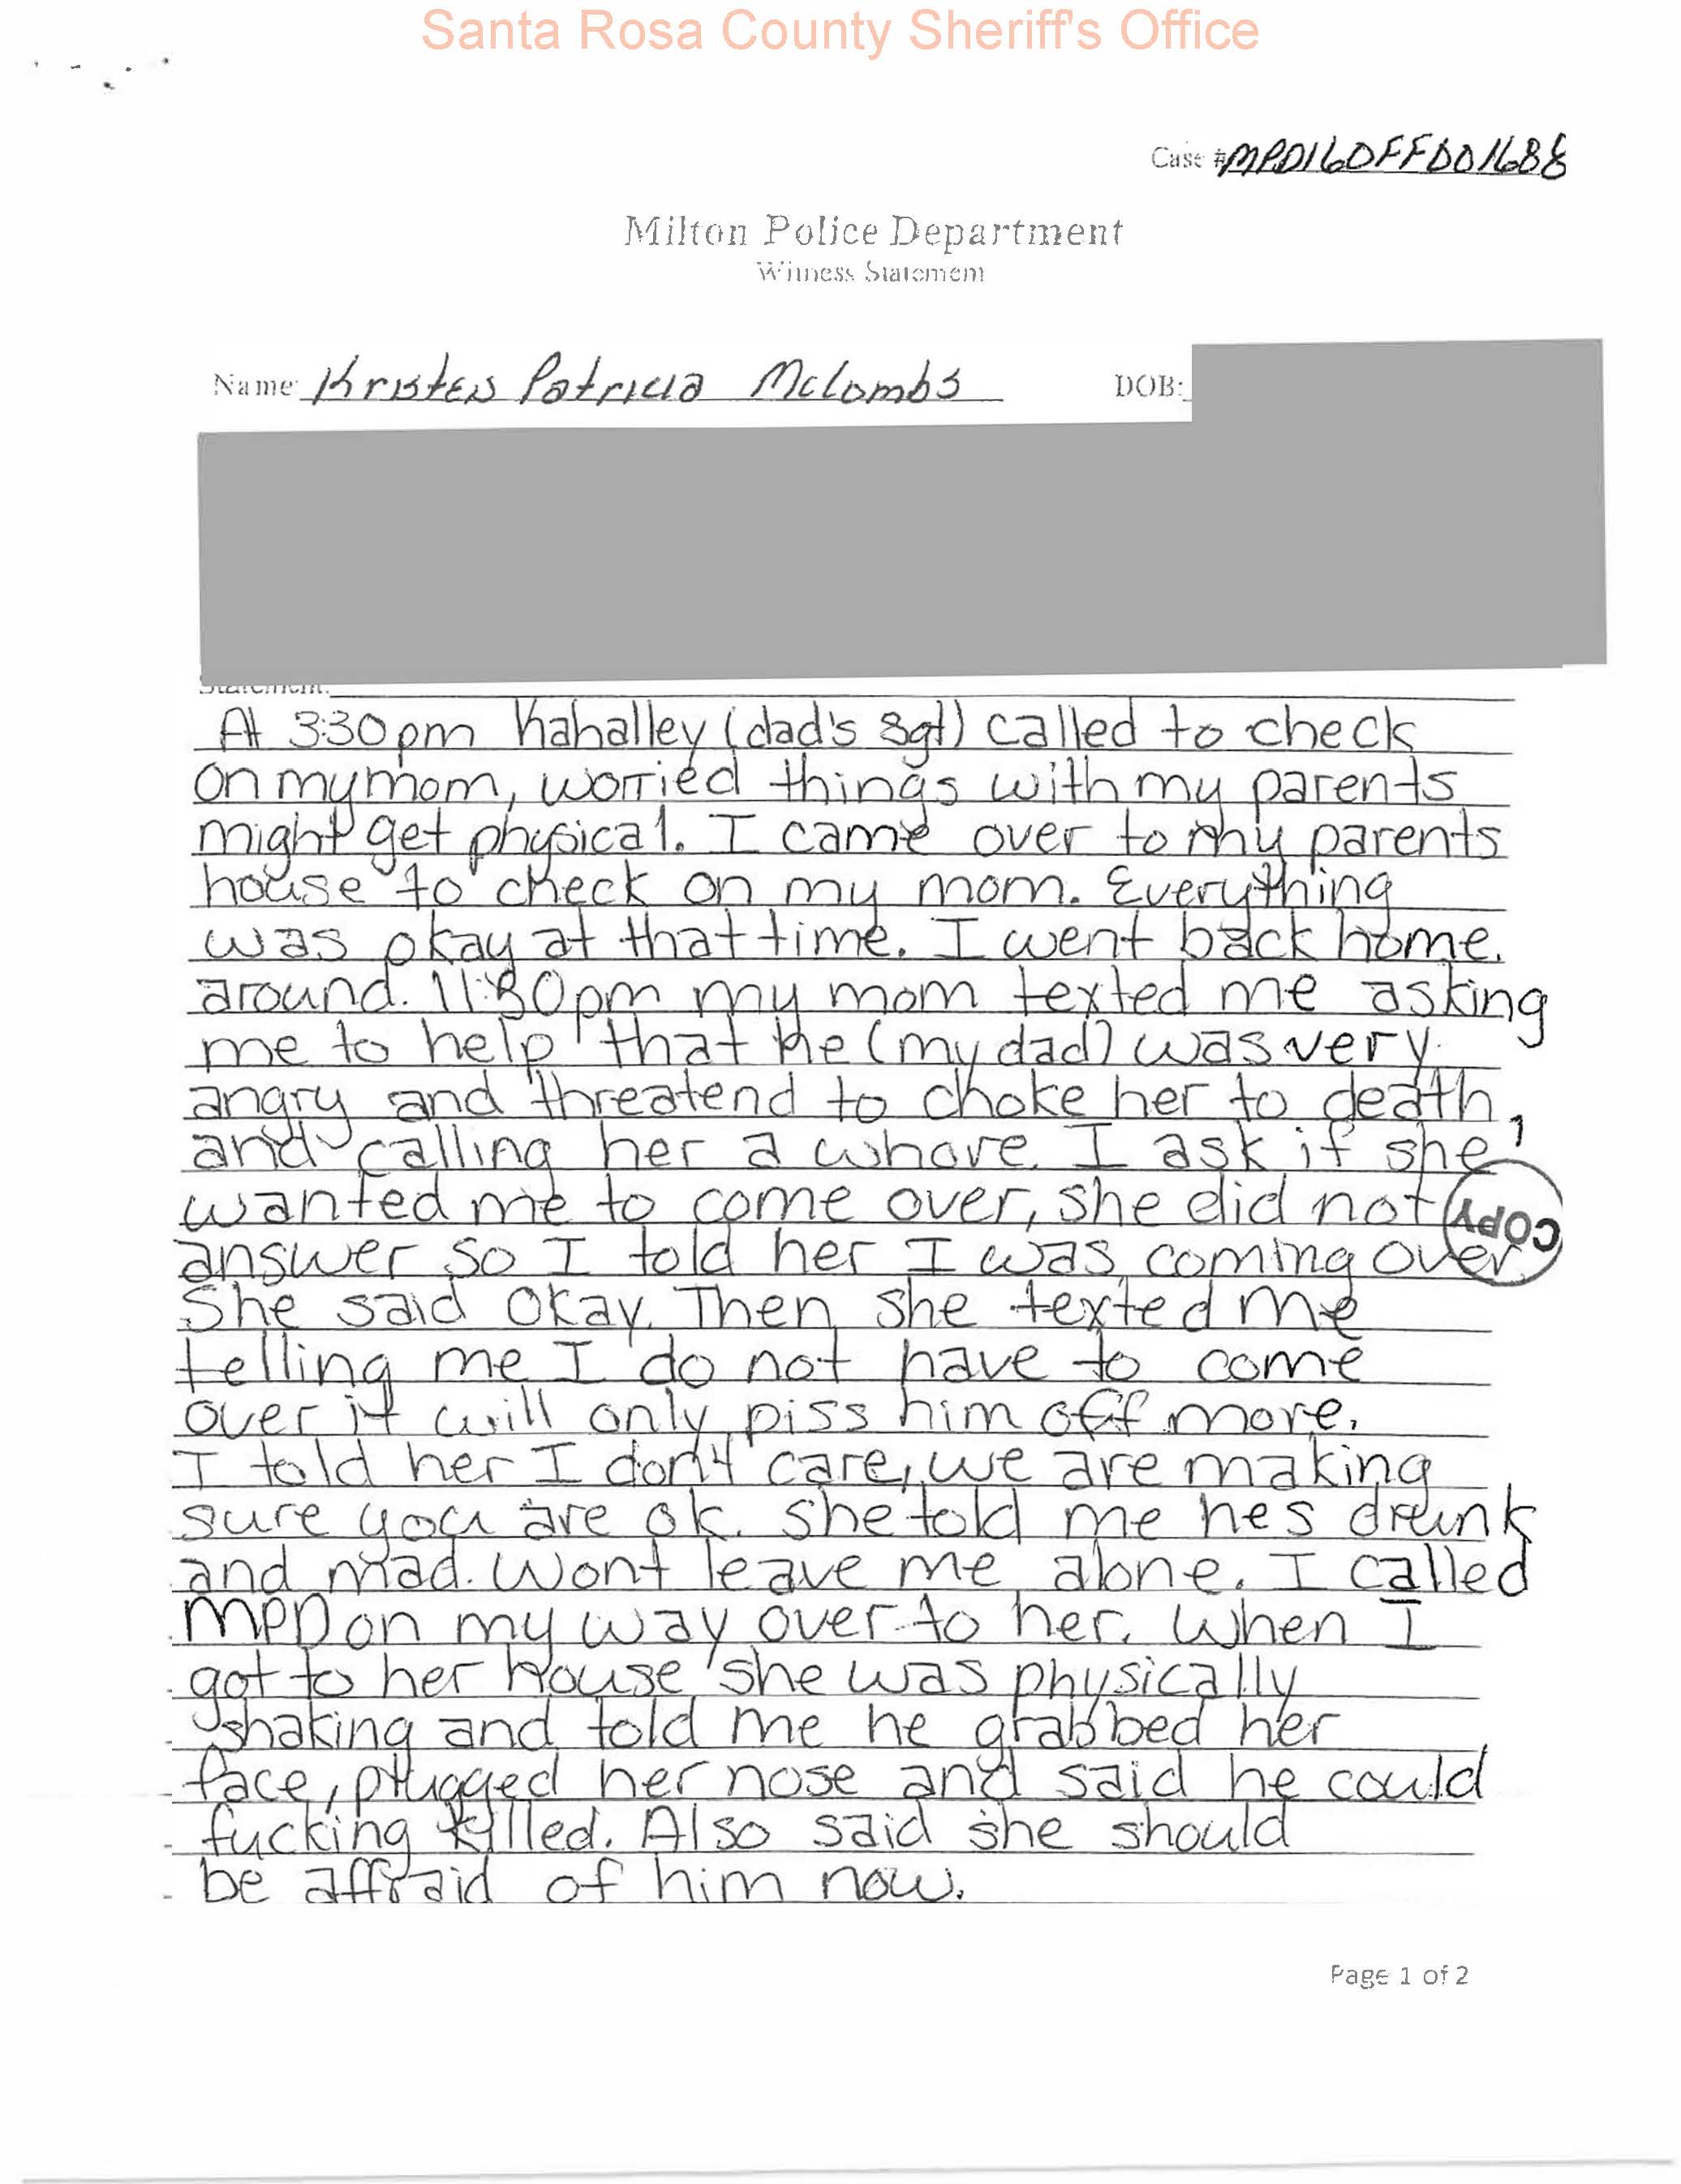 Santa Rosa County Sheriff's Office
Case # MPD16OFF001688
Milton Police Department
Witness Statement
Name: Kristen Patricia McCombs DOB:
Statement:
At 3:30pm Kahalley (dad's Sgt) called to check
on my mom, worried things with my parents
might get physical. I came over to my parents
house to check on my mom. Everything
was okay at that time. I went back home.
around. 11:30pm my mom texted me asking
me to help that he (my dad) was very
angry and threatend to choke her to death,
and calling her a whore. I ask if she
wanted me to come over, she did not
COPY
answer so I told her I was coming over.
She said okay. Then she texted me
telling me I do not have to come
over it will only piss him off more.
I told her I don't care, we are making
sure you are ok. she told me hes drunk
and mad. Wont leave me alone. I called
MPD on my way over to her. When I
got to her house she was physically
shaking and told me he grabbed her
face, plugged her nose and said he could
fucking killed. Also said she should
be affraid of him now.
Page 1 of 2